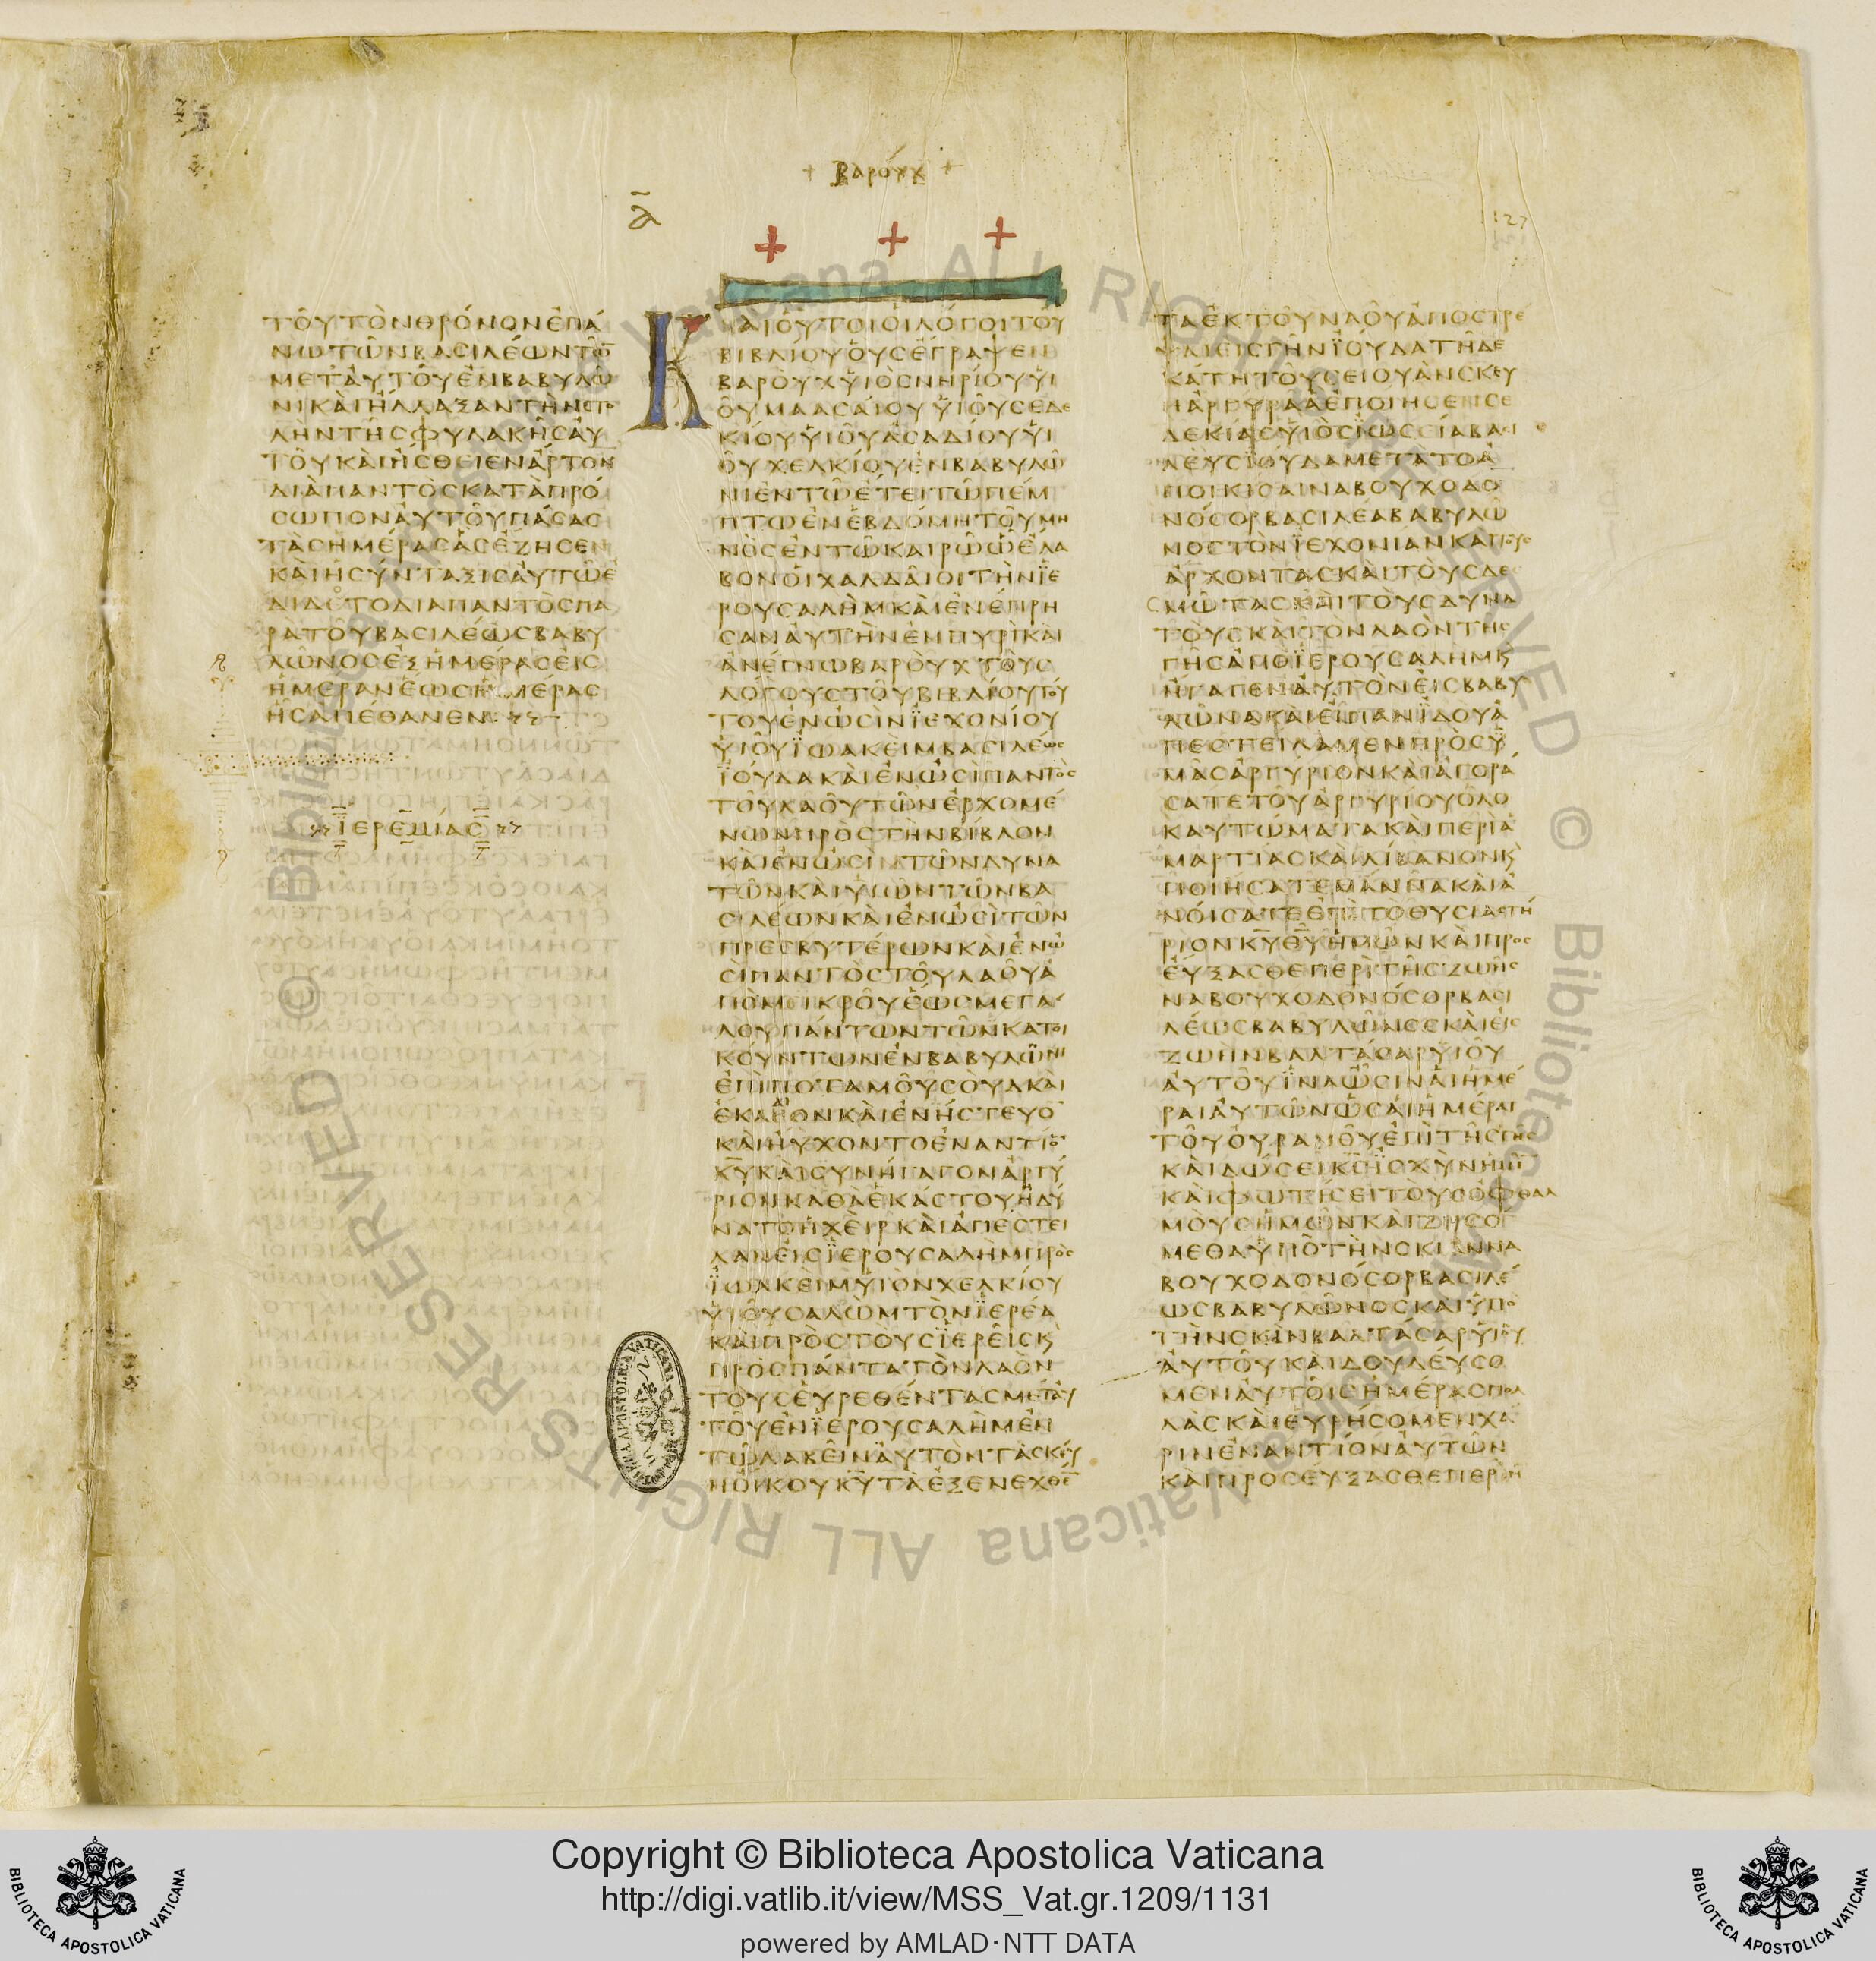 + Βαρούχ +
ᾱ
1127
ΤΟΥΤΟΝΘΡΟΝΟΝΕΠΑ
ΝΩΤΩΝΒΑΣΙΛΕΩΝΤΩ̅
ΜΕΤΑΥΤΟΥΕΝΒΑΒΥΛΩ
ΝΙΚΑΙΗΛΛΑΞΑΝΤΗΝΣΤΟ
ΛΗΝΤΗΣΦΥΛΑΚΗΣΑΥ
ΤΟΥΚΑΙΗΣΘΕΙΕΝΑΡΤΟΝ
ΔΙΑΠΑΝΤΟΣΚΑΤΑΠΡΟ
ΣΩΠΟΝΑΥΤΟΥΠΑΣΑΣ
ΤΑΣΗΜΕΡΑΣΑΣΕΖΗΣΕΝ
ΚΑΙΗΣΥΝΤΑΞΙΣΑΥΤΩΕ
ΔΙΔΕΤΟΔΙΑΠΑΝΤΟΣΠΑ
ΡΑΤΟΥΒΑΣΙΛΕΩΣΒΑΒΥ
ΛΩΝΟΣΕΞΗΜΕΡΑΣΕΙΣ
ΗΜΕΡΑΝΕΩΣΗΜΕΡΑΣ
ΗΣΑΠΕΘΑΝΕΝ
ΙΕΡΕΜΙΑΣ
ΚΑΙΟΥΤΟΙΟΙΛΟΓΟΙΤΟΥ
ΒΙΒΛΙΟΥΟΥΣΕΓΡΑΨΕΝ
ΒΑΡΟΥΧΥΙΟΣΝΗΡΙΟΥΥΙ
ΟΥΜΑΑΣΑΙΟΥΥΙΟΥΣΕΔΕ
ΚΙΟΥΥΙΟΥΑΣΑΔΙΟΥΥΙ
ΟΥΧΕΛΚΙΟΥΕΝΒΑΒΥΛΩ
ΝΙΕΝΤΩΕΤΕΙΤΩΠΕΜ
ΠΤΩΕΝΕΒΔΟΜΗΤΟΥΜΗ
ΝΟΣΕΝΤΩΚΑΙΡΩΩΕΛΑ
ΒΟΝΟΙΧΑΛΔΑΙΟΙΤΗΝΙΕ
ΡΟΥΣΑΛΗΜΚΑΙΕΝΕΠΡΗ
ΣΑΝΑΥΤΗΝΕΜΠΥΡΙΚΑΙ
ΑΝΕΓΝΩΒΑΡΟΥΧΤΟΥΣ
ΛΟΓΟΥΣΤΟΥΒΙΒΛΙΟΥΤΟΥ
ΤΟΥΕΝΩΣΙΝΙΕΧΟΝΙΟΥ
ΥΙΟΥΙΩΑΚΕΙΜΒΑΣΙΛΕΩΣ
ΙΟΥΔΑΚΑΙΕΝΩΣΙΠΑΝΤΟΣ
ΤΟΥΛΑΟΥΤΩΝΕΡΧΟΜΕ
ΝΩΝΠΡΟΣΤΗΝΒΙΒΛΟΝ
ΚΑΙΕΝΩΣΙΝΤΩΝΔΥΝΑ
ΤΩΝΚΑΙΥΙΩΝΤΩΝΒΑ
ΣΙΛΕΩΝΚΑΙΕΝΩΣΙΤΩΝ
ΠΡΕΣΒΥΤΕΡΩΝΚΑΙΕΝΩ
ΣΙΠΑΝΤΟΣΤΟΥΛΑΟΥΑ
ΠΟΜΕΙΚΡΟΥΕΩΣΜΕΓΑ
ΛΟΥΠΑΝΤΩΝΤΩΝΚΑΤΟΙ
ΚΟΥΝΤΩΝΕΝΒΑΒΥΛΩΝΙ
ΕΠΙΠΟΤΑΜΟΥΣΟΥΔΚΑΙ
ΕΚΛΑΙΟΝΚΑΙΕΝΗΣΤΕΥΟ̅
ΚΑΙΗΥΧΟΝΤΟΕΝΑΝΤΙΟ̅
Κ̅Υ̅ΚΑΙΣΥΝΗΓΑΓΟΝΑΡΓΥ
ΡΙΟΝΚΑΘΑΕΚΑΣΤΟΥΗΔΥ
ΝΑΤΟΗΧΕΙΡΚΑΙΑΠΕΣΤΕΙ
ΛΑΝΕΙΣΙΕΡΟΥΣΑΛΗΜΠΡΟΣ
ΙΩΑΚΕΙΜΥΙΟΝΧΕΛΚΙΟΥ
ΥΙΟΥΣΑΛΩΜΤΟΝΙΕΡΕΑ
ΚΑΙΠΡΟΣΤΟΥΣΙΕΡΕΙΣΚ
ΠΡΟΣΠΑΝΤΑΤΟΝΛΑΟΝ
ΤΟΥΣΕΥΡΕΘΕΝΤΑΣΜΕΤΑΥ
ΤΟΥΕΝΙΕΡΟΥΣΑΛΗΜΕΝ
ΤΩΛΑΒΕΙΝΑΥΤΟΝΤΑΣΚΕΥ
ΗΟΙΚΟΥΚ̅Υ̅ΤΑΕΞΕΝΕΧΘΕ̅
ΤΑΕΚΤΟΥΝΑΟΥΑΠΟΣΤΡΕ
ΨΑΙΕΙΣΓΗΝΙΟΥΔΑΤΗΔΕ
ΚΑΤΗΤΟΥΣΕΙΟΥΑΝΣΚΕΥ
ΗΑΡΓΥΡΑΑΕΠΟΙΗΣΕΝΣΕ
ΔΕΚΙΑΣΥΙΟΣΙΩΣΕΙΑΒΑΣΙ
ΛΕΥΣΙΟΥΔΑΜΕΤΑΤΟΑ
ΠΟΙΚΙΣΑΙΝΑΒΟΥΧΟΔΟ
ΝΟΣΟΡΒΑΣΙΛΕΑΒΑΒΥΛΩ
ΝΟΣΤΟΝΙΕΧΟΝΙΑΝΚΑΙΤΟΥΣ
ΑΡΧΟΝΤΑΣΚΑΙΤΟΥΣΔΕ
ΣΜΩΤΑΣΚΑΙΤΟΥΣΔΥΝΑ
ΤΟΥΣΚΑΙΤΟΝΛΑΟΝΤΗΣ
ΓΗΣΑΠΟΙΕΡΟΥΣΑΛΗΜΚ
ΗΓΑΓΕΝΑΥΤΟΝΕΙΣΒΑΒΥ
ΛΩΝΑΚΑΙΕΙΠΑΝΙΔΟΥΑ
ΠΕΣΤΕΙΛΑΜΕΝΠΡΟΣΥ
ΜΑΣΑΡΓΥΡΙΟΝΚΑΙΑΓΟΡΑ
ΣΑΤΕΤΟΥΑΡΓΥΡΙΟΥΟΛΟ
ΚΑΥΤΩΜΑΤΑΚΑΙΠΕΡΙΑ
ΜΑΡΤΙΑΣΚΑΙΛΙΒΑΝΟΝΚ
ΠΟΙΗΣΑΤΕΜΑΝΝΑΚΑΙΑ
ΝΟΙΣΑΤΕΕΠΙΤΟΘΥΣΙΑΣΤΗ
ΡΙΟΝΚ̅Υ̅Θ̅Υ̅ΗΜΩΝΚΑΙΠΡΟΣ
ΕΥΞΑΣΘΕΠΕΡΙΤΗΣΖΩΗΣ
ΝΑΒΟΥΧΟΔΟΝΟΣΟΡΒΑΣΙ
ΛΕΩΣΒΑΒΥΛΩΝΟΣΚΑΙΕΙΣ
ΖΩΗΝΒΑΛΤΑΣΑΡΥΙΟΥ
ΑΥΤΟΥΙΝΑΩΣΙΝΑΙΗΜΕ
ΡΑΙΑΥΤΩΝΩΣΑΙΗΜΕΡΑΙ
ΤΟΥΟΥΡΑΝΟΥΕΠΙΤΗΣΓΗΣ
ΚΑΙΔΩΣΕΙΚ̅Σ̅ΙΣΧΥΝΗΜΙ̅
ΚΑΙΦΩΤΙΣΕΙΤΟΥΣΟΦΘΑΛ
ΜΟΥΣΗΜΩΝΚΑΙΖΗΣΟ
ΜΕΘΑΥΠΟΤΗΝΣΚΙΑΝΝΑ
ΒΟΥΧΟΔΟΝΟΣΟΡΒΑΣΙΛΕ
ΩΣΒΑΒΥΛΩΝΟΣΚΑΙΥΠΟ
ΤΗΝΣΚΙΑΝΒΑΛΤΑΣΑΡΥΙΟΥ
ΑΥΤΟΥΚΑΙΔΟΥΛΕΥΣΟ
ΜΕΝΑΥΤΟΙΣΗΜΕΡΑΣΠΟΛ
ΛΑΣΚΑΙΕΥΡΗΣΟΜΕΝΧΑ
ΡΙΝΕΝΑΝΤΙΟΝΑΥΤΩΝ
ΚΑΙΠΡΟΣΕΥΞΑΣΘΕΠΕΡΙΗ
Copyright © Biblioteca Apostolica Vaticana
http://digi.vatlib.it/view/MSS_Vat.gr.1209/1131
powered by AMLAD·NTT DATA
BIBLIOTECA APOSTOLICA VATICANA
BIBLIOTECA APOSTOLICA VATICANA
© Biblioteca Apostolica Vaticana ALL RIGHTS RESERVED